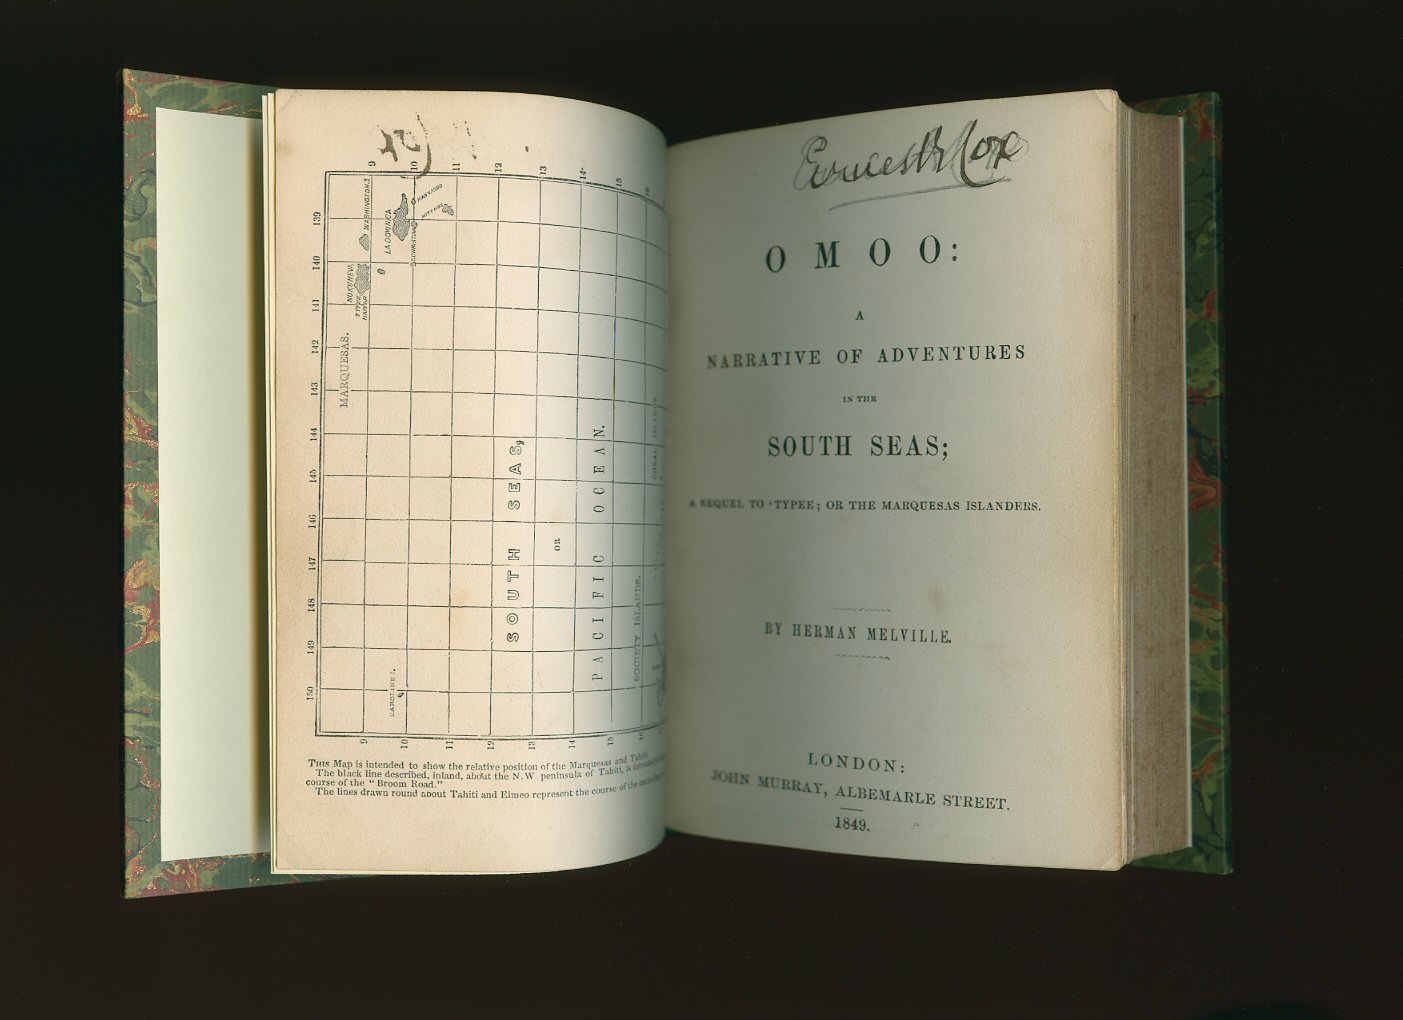 9
10
11
12
13
14
15
16
139
140
141
142
143
144
145
146
147
148
149
150
WASHINGTON I
LA DOMINICA
NUKUHEVA
TYPEE
HARBOR
MARQUESAS.
SOUTH SEAS,
OR
PACIFIC OCEAN.
CORAL ISLANDS.
SOCIETY ISLANDS.
CAROLINE I.
9
10
11
12
13
14
15
16
THIS Map is intended to show the relative position of the Marquesas and Tahiti.
The black line described, inland, about the N.W peninsula of Tahiti, is intended
course of the "Broom Road."
The lines drawn round about Tahiti and Eimeo represent the course of the
Ernest Cox
OMOO:
A
NARRATIVE OF ADVENTURES
IN THE
SOUTH SEAS;
A SEQUEL TO 'TYPEE; OR THE MARQUESAS ISLANDERS.
BY HERMAN MELVILLE.
LONDON:
JOHN MURRAY, ALBEMARLE STREET.
1849.